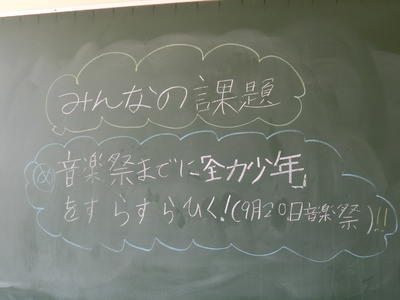 みんなの課題
め 音楽祭までに「全力少年」
をすらすらひく!(9月20日音楽祭)!!